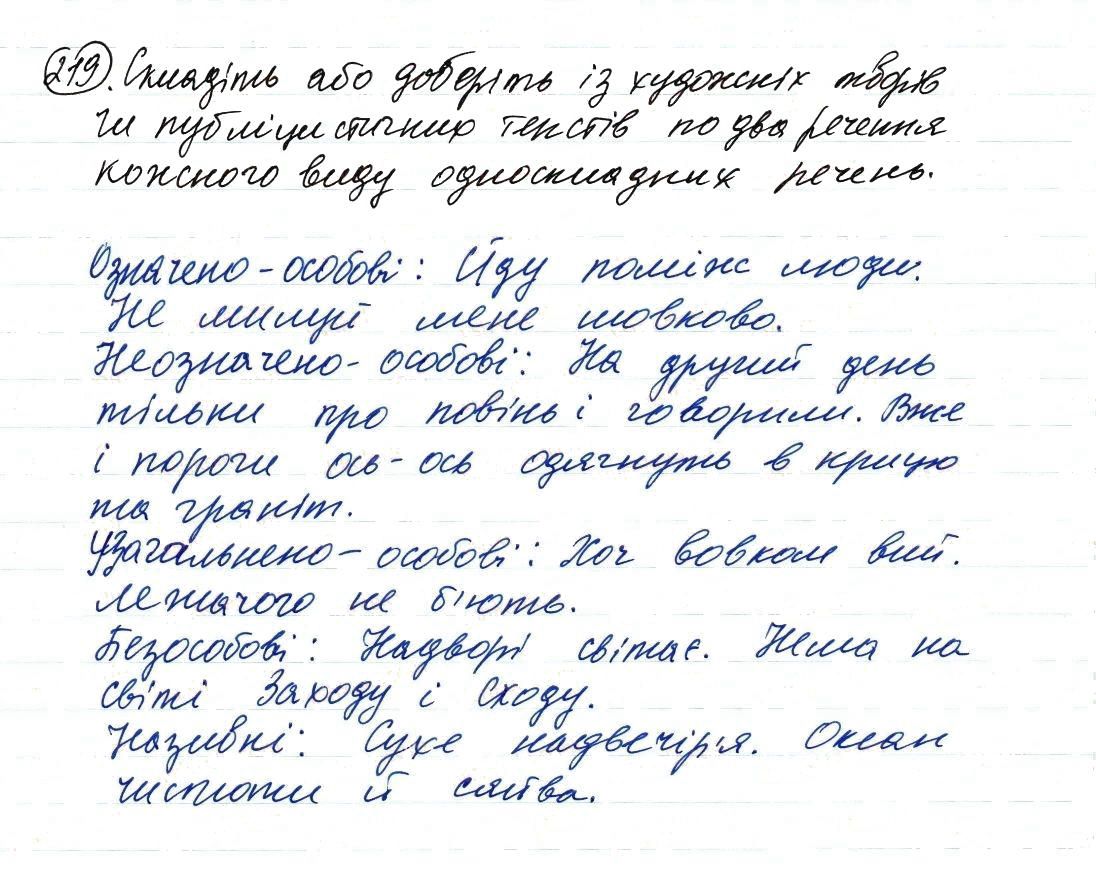 219. Складіть або доберіть із художніх творів
чи публіцистичних текстів по два речення
кожного виду односкладних речень.
Означено-особові: Йду поміж люди.
Не милуй мене шовково.
Неозначено-особові: На другий день
тільки про повінь і говорили. Вже
і пороги ось-ось одягнуть в крицю
та граніт.
Узагальнено-особові: Хоч вовком вий.
Лежачого не б'ють.
Безособові: Надворі світає. Нема на
світі Заходу і Сходу.
Називні: Сухе надвечір'я. Океан
чистоти й сяйва.